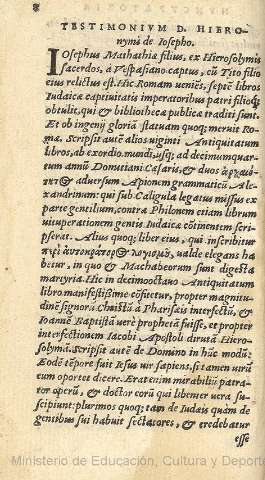 8
TESTIMONIVM D. HIERO-
nymi de Iosepho.
IOsephus Mathathiæ filius, ex Hierosolymis
sacerdos, à Vespasiano captus, cū Tito filio
eius relictus est. Hic Romam ueniēs, septē libros
Iudaicæ captiuitatis imperatoribus patri filioq́;
obtulit, qui & bibliothecæ publicæ traditi sunt.
Et ob ingenij gloriā statuam quoq; meruit Ro-
mæ. Scripsit autē alios uiginti Antiquitatum
libros, ab exordio mundi, usq; ad decimumquar-
tum annū Domitiani Cæsaris, & duos ἀρχαιό-
τητ@ aduersum Apionem grammaticū Ale-
xandrinum: qui sub Caligula legatus missus ex
parte gentilium, contra Philonem etiam librum
uituperationem gentis Iudaicæ cōtinentem scri-
pserat. Alius quoq; liber eius, qui inscribitur
περὶ ἀυτοκράτορ@ λογισμȣ, ualde elegans ha
betur, in quo & Machabeorum sunt digesta
martyria. Hic in decimooctauo Antiquitatum
libro manifestissime cōfitetur, propter magnitu-
dinē signorū Christū à Pharisæis interfectū, &
Ioannē Baptistā uerè prophetā fuisse, et propter
interfectionem Iacobi Apostoli dirutā Hiero-
solymā. Scripsit autē de Domino in hūc modū:
Eodē tēpore fuit Iesus uir sapiens, si tamen uirū
eum oportet dicere. Erat enim mirabiliū patra-
tor operū, & doctor eorū qui libenter uera su-
scipiunt: plurimos quoq; tam de Iudæis quàm de
gentibus sui habuit sectatores, & credebatur
esse
Ministerio de Educación, Cultura y Deporte